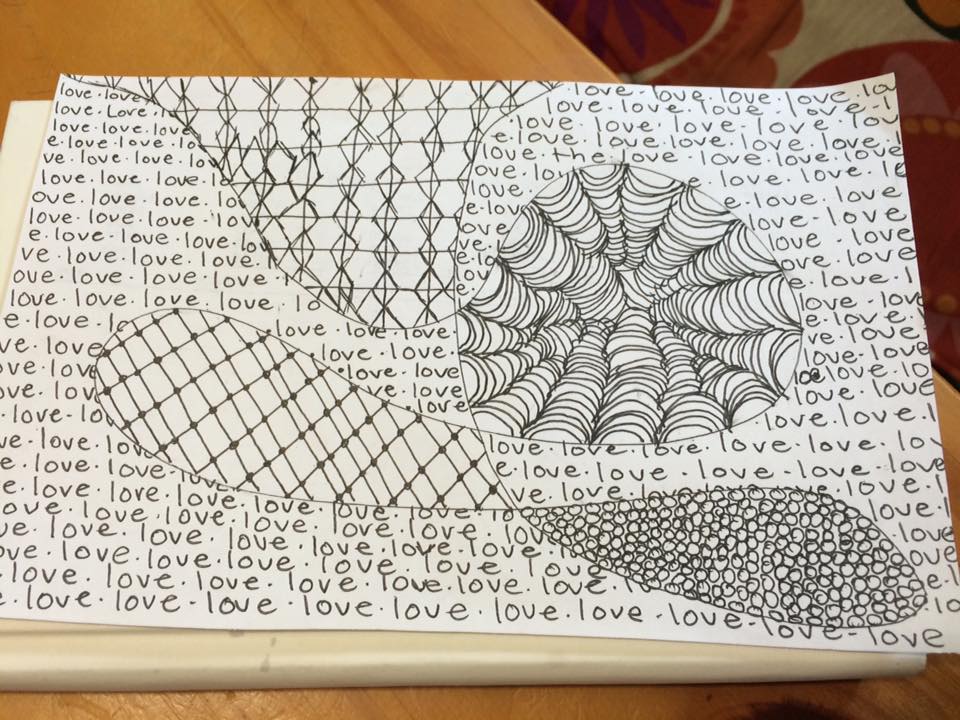 love . love
love . Love .
love . love . love
e . love . love . love
ve . love . love . lo
love . love . love
ove . love . love . lo
love . love . love . lo
e . love . love . love . lo
ve . love . love . love .
ove . love . love . love
love . love . love . love . lo
e . love . lo
love . love . love
love . love
love . love . love
love . love
love
love . love . love . love . lov
love . love . love . love . l
love . love . love . love
e . love . love . love . love
love . the love . love . love . love
ove . lo
love . love . love
love
love . love
love . love
love . love
love . love
love . love
love . love
love . love
love . love . love . love . lo
e . love . love . love . love . love
ve . love . love . love
e . love . love . love . love . love . love
love . love . love . love . love . love
love . love . love . love . love . love . lo
love . love . love . love . love . love
e . love . love . love . love . love . love . love . love . love . love